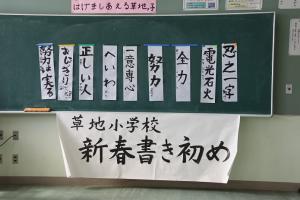 はげましあえる草地っ子
忍之一字
電光石火
全力
努力
一意専心
へいわ
正しい人
おにぎり
努力は実る
草地小学校
新春書き初め